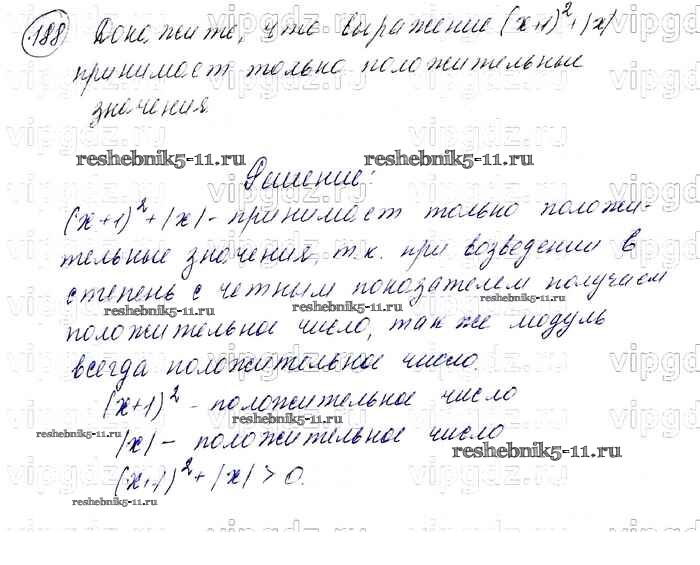 188 Докажите, что выражение (x+1)² + |x|
принимает только положительные
значения.
reshebnik5-11.ru reshebnik5-11.ru
Решение:
(x+1)² + |x| - принимает только положи-
тельные значения, т.к. при возведении в
степень с четным показателем получаем
reshebnik5-11.ru reshebnik5-11.ru
положительное число, так же модуль
всегда положительное число.
(x+1)² - положительное число
reshebnik5-11.ru
|x| - положительное число
reshebnik5-11.ru
(x+1)² + |x| > 0.
reshebnik5-11.ru